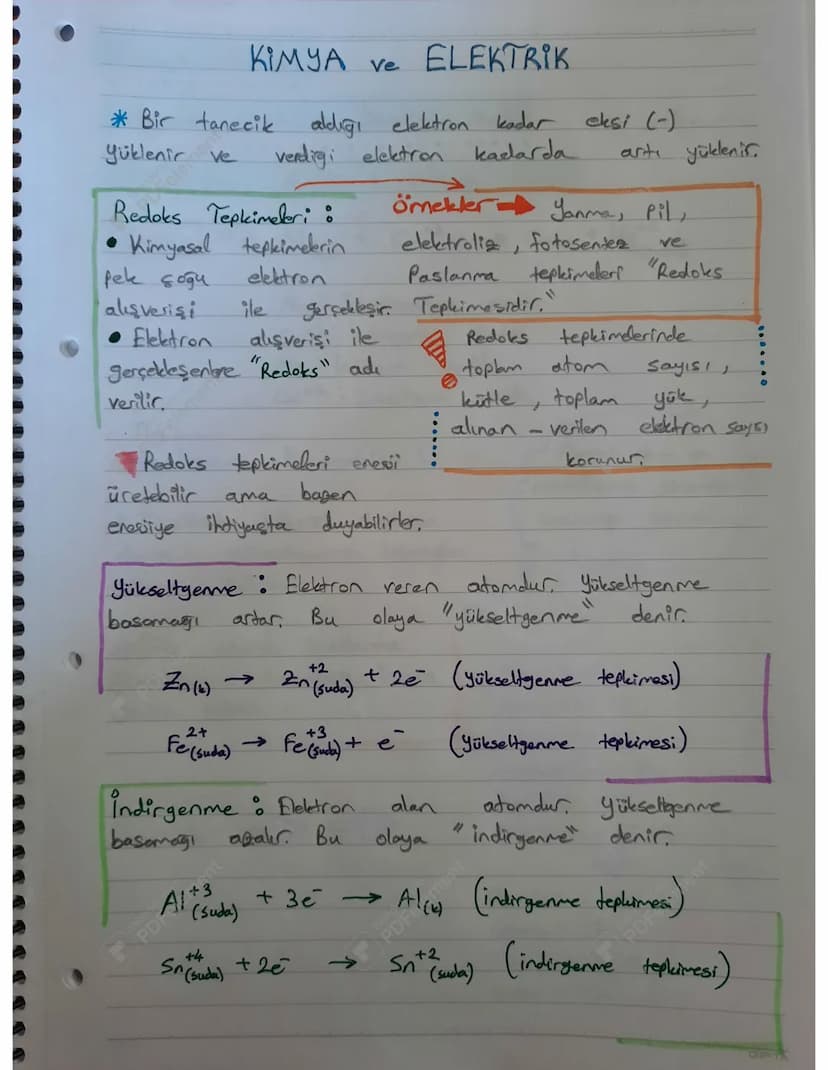 KİMYA ve ELEKTRİK
* Bir tanecik aldığı elektron kadar eksi (-)
yüklenir ve verdiği elektron kadarda artı yüklenir.
Redoks Tepkimeleri :
• Kimyasal tepkimelerin
pek çoğu elektron
alışverişi ile gerçekleşir.
• Elektron alışverişi ile
gerçekleşenlere "Redoks" adı
verilir.
Örnekler → Yanma, pil,
elektroliz, fotosentez ve
Paslanma tepkimeleri "Redoks
Tepkimesidir."
! Redoks tepkimelerinde
toplam atom sayısı,
kütle, toplam yük,
alınan - verilen elektron sayısı
korunur.
Redoks tepkimeleri enerji
üretebilir ama bazen
enerjiye ihtiyaçta duyabilirler.
Yükseltgenme : Elektron veren atomdur. Yükseltgenme
basamağı artar. Bu olaya "yükseltgenme" denir.
Zn(k) → Zn+2(suda) + 2e- (yükseltgenme tepkimesi)
Fe2+(suda) → Fe+3(suda) + e- (yükseltgenme tepkimesi)
İndirgenme : Elektron alan atomdur. Yükseltgenme
basamağı azalır. Bu olaya "indirgenme" denir.
Al+3(suda) + 3e- → Al(k) (indirgenme tepkimesi)
Sn+4(suda) + 2e- → Sn+2(suda) (indirgenme tepkimesi)